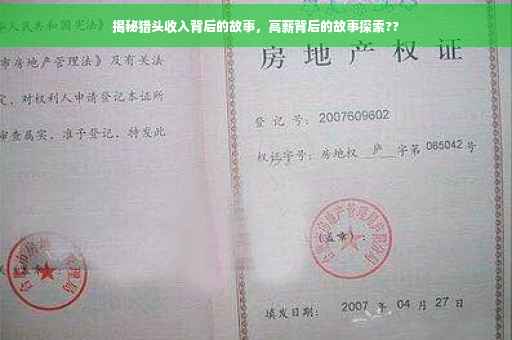 揭秘猎头收入背后的故事，高薪背后的故事探索??
人民共和国宪法》
市房地产管理法》及有关法
定，对权利人申请登记本证所
审查属实，准予登记，特发此
房地产权证
登记号：2007609602
权证字号：房地权 庐 字第 085042 号
(盖章)：
填发日期：2007 年 04 月 27 日